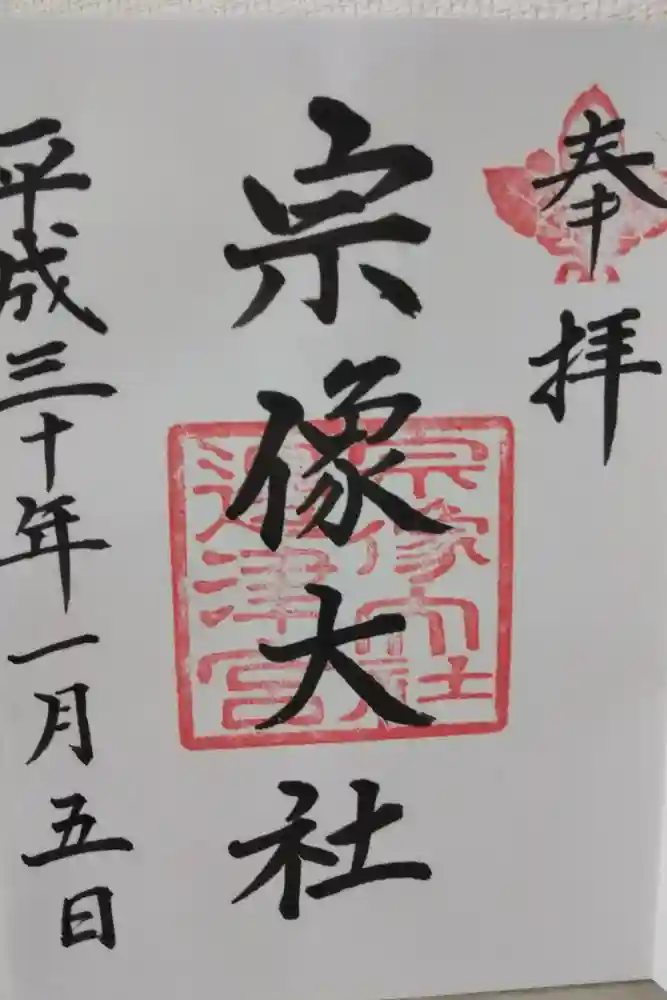 奉拝
宗像大社
宗像大社
邉津宮
平成三十年一月五日